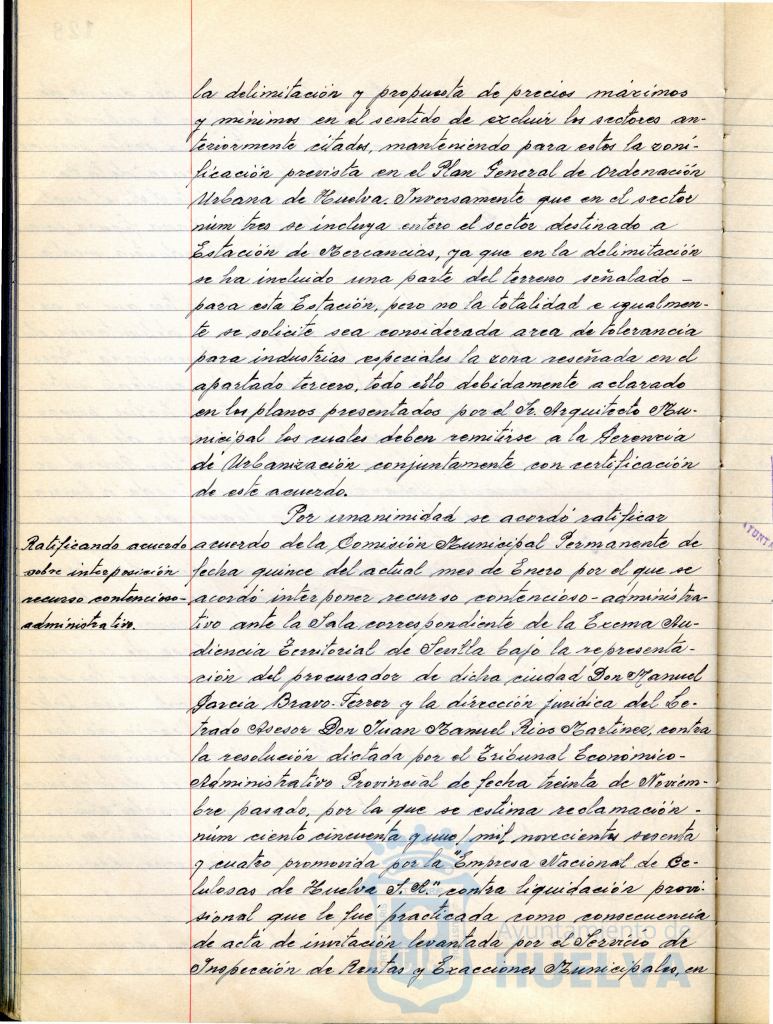 la delimitación y propuesta de precios máximos
y mínimos en el sentido de excluir los sectores an-
teriormente citados, manteniendo para estos la zoni-
ficación prevista en el Plan General de Ordenación
Urbana de Huelva. Inversamente que en el sector
núm tres se incluya entero el sector destinado a
Estación de Mercancias, ya que en la delimitación
se ha incluido una parte del terreno señalado -
para esta Estación, pero no la totalidad e igualmen-
te se solicite sea considerada area de tolerancia
para industrias especiales la zona reseñada en el
apartado tercero, todo ello debidamente aclarado
en los planos presentados por el Sr. Arquitecto Mu-
nicipal los cuales deben remitirse a la Gerencia
de Urbanización conjuntamente con certificación
de este acuerdo.
Por unanimidad se acordó ratificar
Ratificando acuerdo
sobre interposición
recurso contencioso-
administrativo.
acuerdo de la Comisión Municipal Permanente de
fecha quince del actual mes de Enero por el que se
acordó interponer recurso contencioso-administra-
tivo ante la Sala correspondiente de la Excma Au-
diencia Territorial de Sevilla bajo la representa-
ción del procurador de dicha ciudad Don Manuel
Garcia Bravo-Ferrer y la dirección juridica del Le-
trado Asesor Don Juan Manuel Rios Martinez, contra
la resolución dictada por el Tribunal Económico-
Administrativo Provincial de fecha treinta de Noviem-
bre pasado, por la que se estima reclamación -
núm ciento cincuenta y uno/mil novecientos sesenta
y cuatro promovida por la "Empresa Nacional de Ce-
lulosas de Huelva S.A." contra liquidación provi-
sional que le fué practicada como consecuencia
de acta de invitación levantada por el Servicio de
Inspección de Rentas y Exacciones Municipales, en
Ayuntamiento de
HUELVA